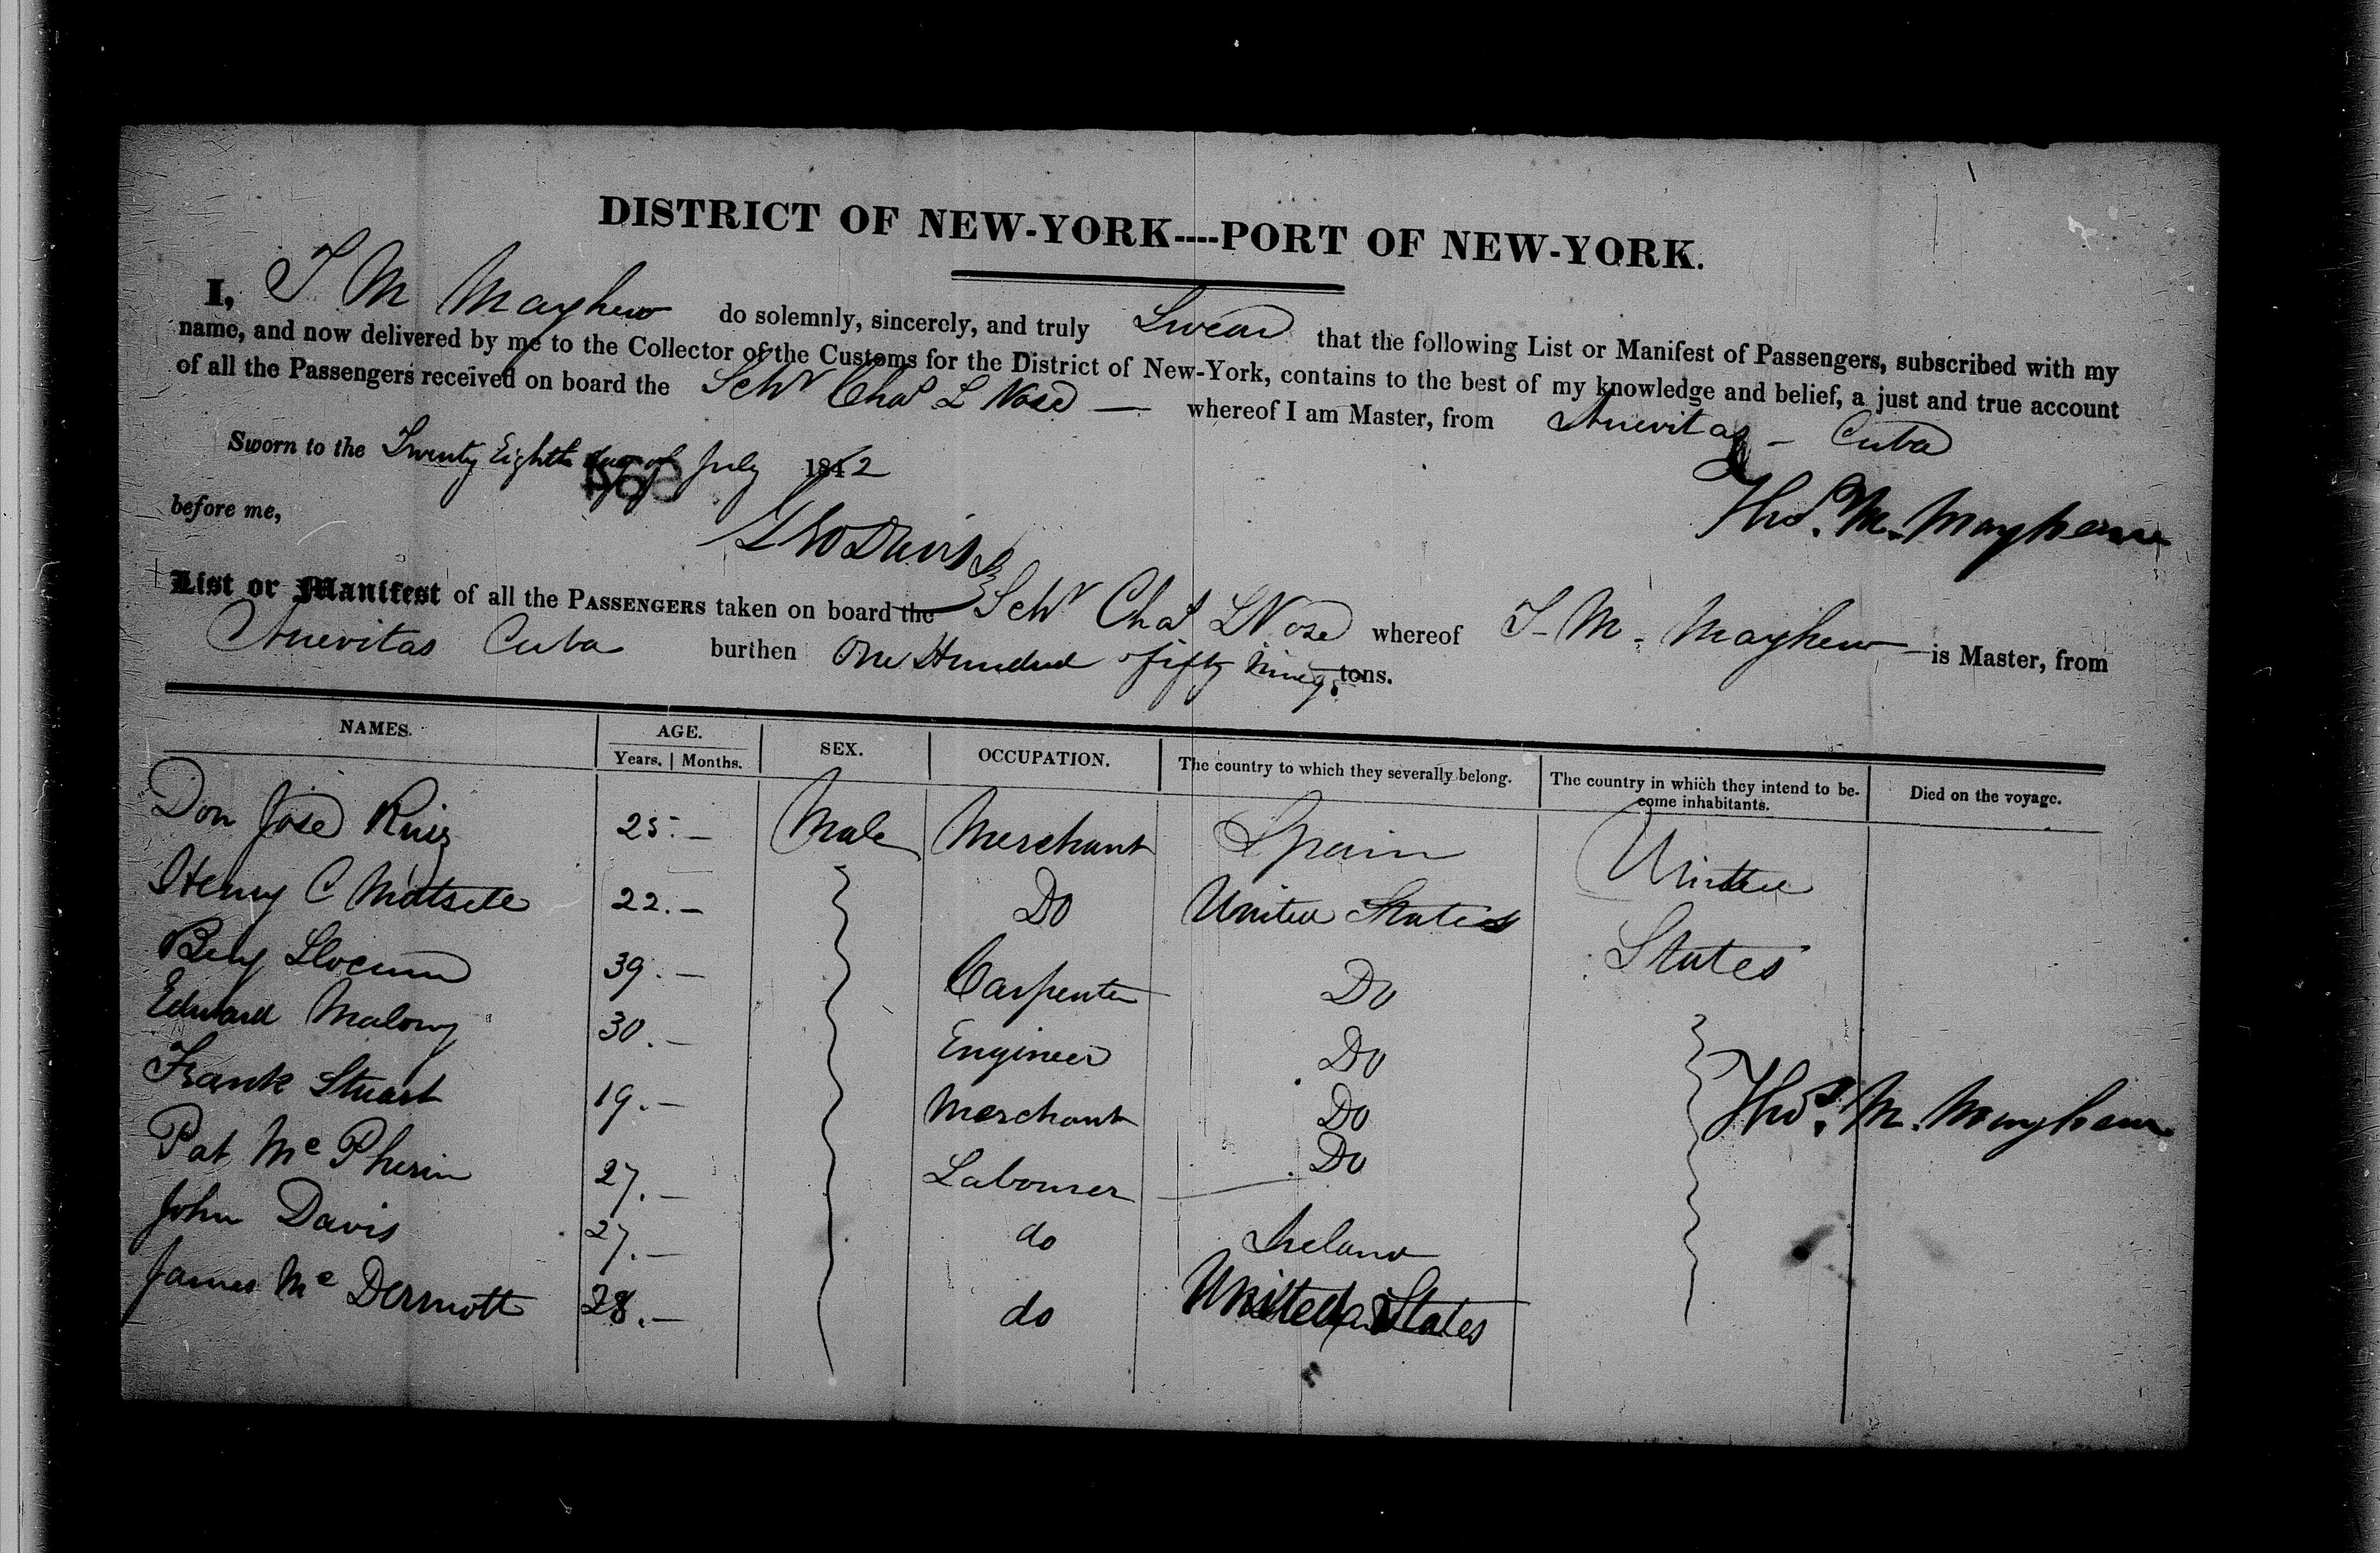 DISTRICT OF NEW-YORK----PORT OF NEW-YORK.
I, T M Mayhew do solemnly, sincerely, and truly Swear that the following List or Manifest of Passengers, subscribed with my
name, and now delivered by me to the Collector of the Customs for the District of New-York, contains to the best of my knowledge and belief, a just and true account
of all the Passengers received on board the Schr Chas L Vose — whereof I am Master, from Nuevitas - Cuba
Sworn to the Twenty Eighth day of July 1842
568
Thos. M. Mayhew
before me,
List or Manifest of all the PASSENGERS taken on board the Schr Chas L Vose whereof T. M. Mayhew is Master, from
Nuevitas Cuba burthen One Hundred fifty Nine tons.
NAMES. AGE. SEX. OCCUPATION. The country to which they severally belong. The country in which they intend to be- Died on the voyage.
Years. Months. come inhabitants.
Don José Ruiz 25.— Male Merchant Spain United
Henry C 22.— Do United States States
Benj Slocum 39.— Carpenter Do
Edward Malony 30.— Engineer Do
Frank Stuart 19.— Merchant Do
Thos. M. Mayhew
Pat Mc Pherin 27.— Labourer Do
John Davis 27.— do Ireland
James Mc Dermott 28.— do United States